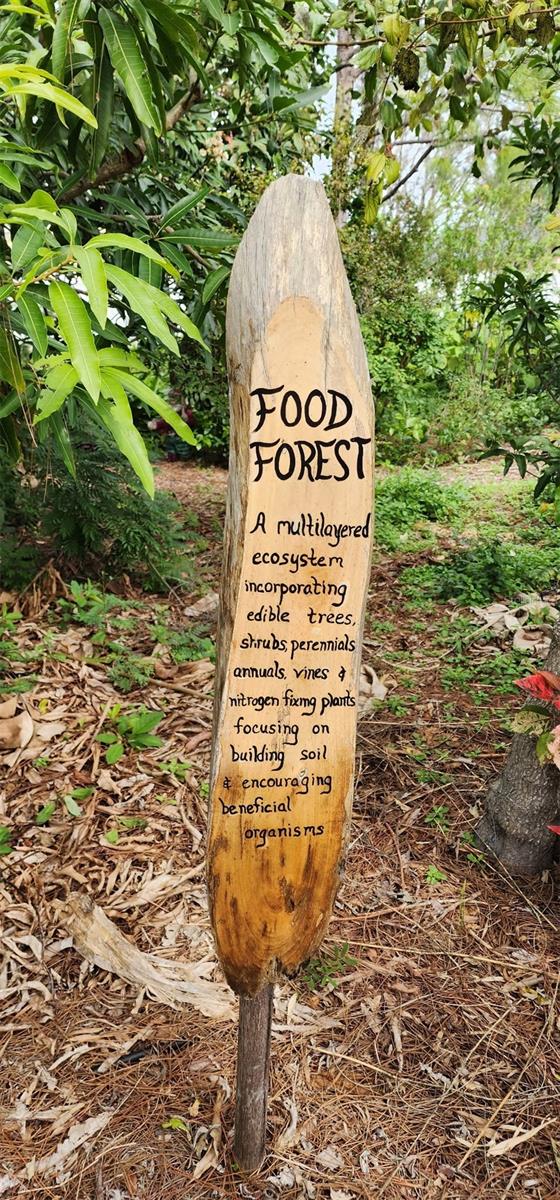 FOOD
FOREST
A multilayered
ecosystem
incorporating
edible trees,
shrubs, perennials
annuals, vines &
nitrogen fixing plants
focusing on
building soil
& encouraging
beneficial
organisms